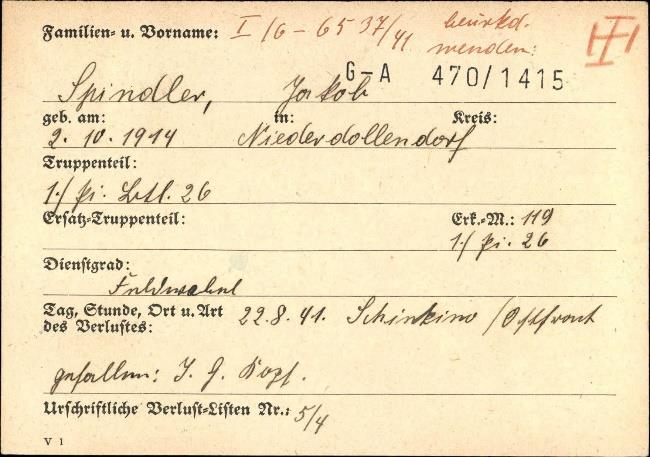 Familien- u. Vorname: I/6 - 6537/41 beurkd.
wenden:
G-A 470/1415
Spindler, Jakob
geb. am: in: Kreis:
2. 10. 1914 Niederdollendorf
Truppenteil:
1./ Pi. Btl. 26
Ersatz-Truppenteil: Erk.-M.: 119
1./ Pi. 26
Dienstgrad:
Feldwebel
Tag, Stunde, Ort u. Art 22.8.41. Schinkino /Ostfront
des Verlustes:
gefallen: I. G. Kopf.
Urschriftliche Verlust-Listen Nr.: 5/4
V 1